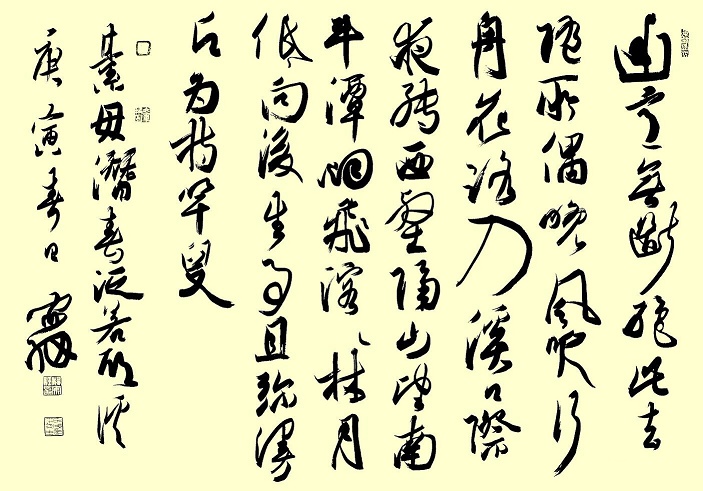 幽意無斷絕此去
隨所偶晚風吹行
舟花路入溪口際
夜轉西壑隔山望南
斗潭烟飛溶〻林月
低向後生事且弥漫
願为持竿叟
綦毋潛春泛若耶溪
庚寅春日